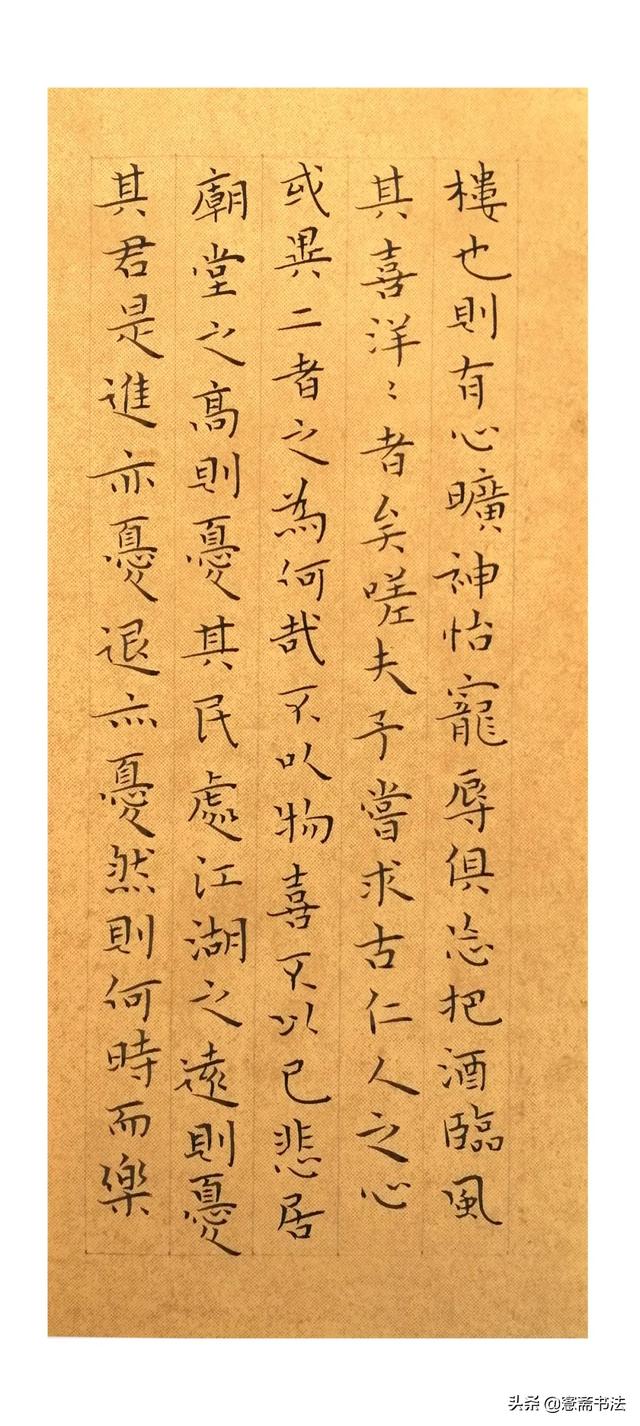 樓也則有心曠神怡寵辱俱忘把酒臨風
其喜洋〻者矣嗟夫予嘗求古仁人之心
或異二者之為何哉不以物喜不以己悲居
廟堂之高則憂其民處江湖之遠則憂
其君是進亦憂退亦憂然則何時而樂
头条 @憲斋书法